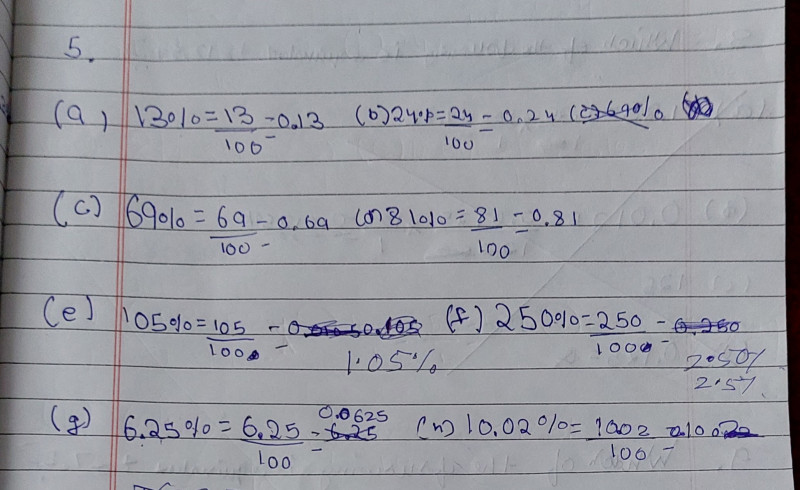 5.
(a) 13% = 13/100 = 0.13 (b) 24% = 24/100 = 0.24 (c) 69%
(c) 69% = 69/100 = 0.69 (d) 81% = 81/100 = 0.81
(e) 105% = 105/100 = 0.105 (f) 250% = 250/100 = 0.250
1.05% 2.50%
2.5%
0.0625
(g) 6.25% = 6.25/100 = 6.25 (h) 10.02% = 1002/100 = 0.100